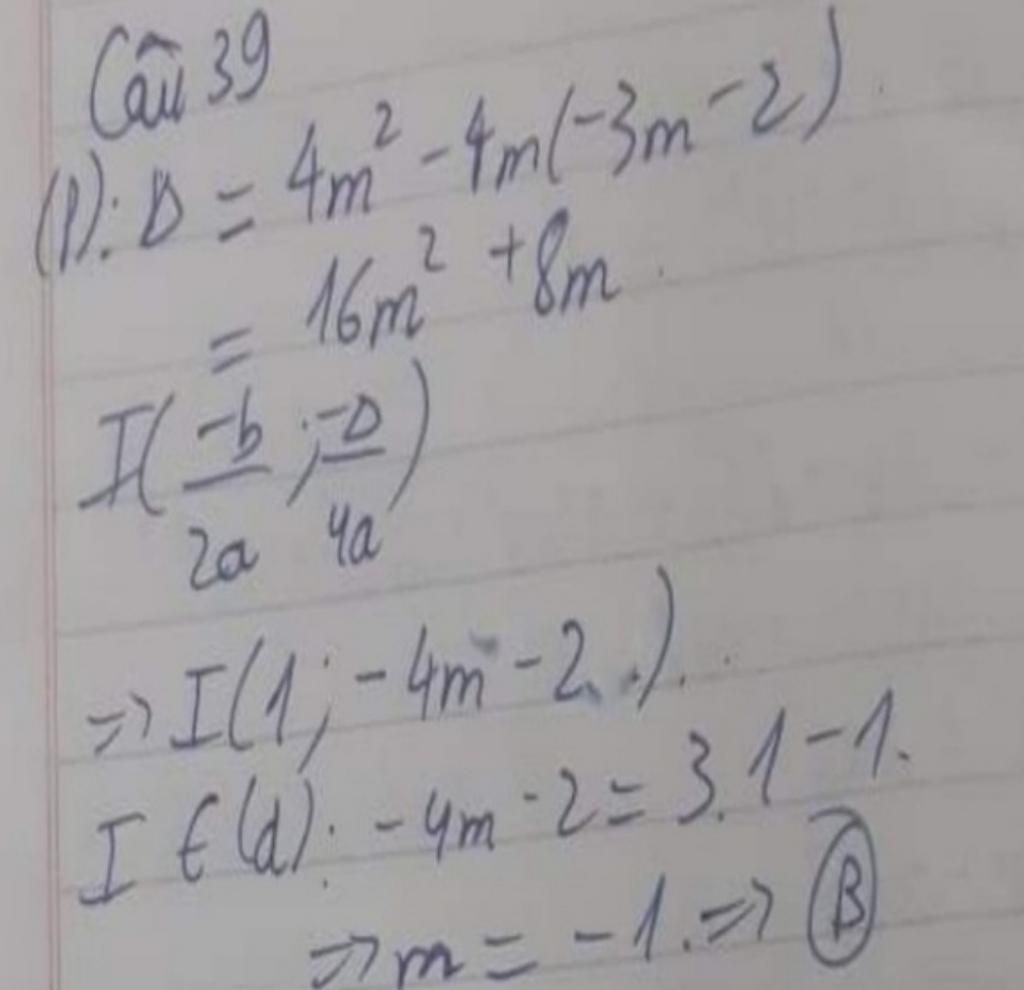 Câu 39
(P): Δ = 4m² - 4m(-3m - 2)
= 16m² + 8m.
I(-b/2a ; -Δ/4a)
=> I(1; -4m - 2).
I ∈ (d): -4m - 2 = 3.1 - 1.
=> m = -1. => B